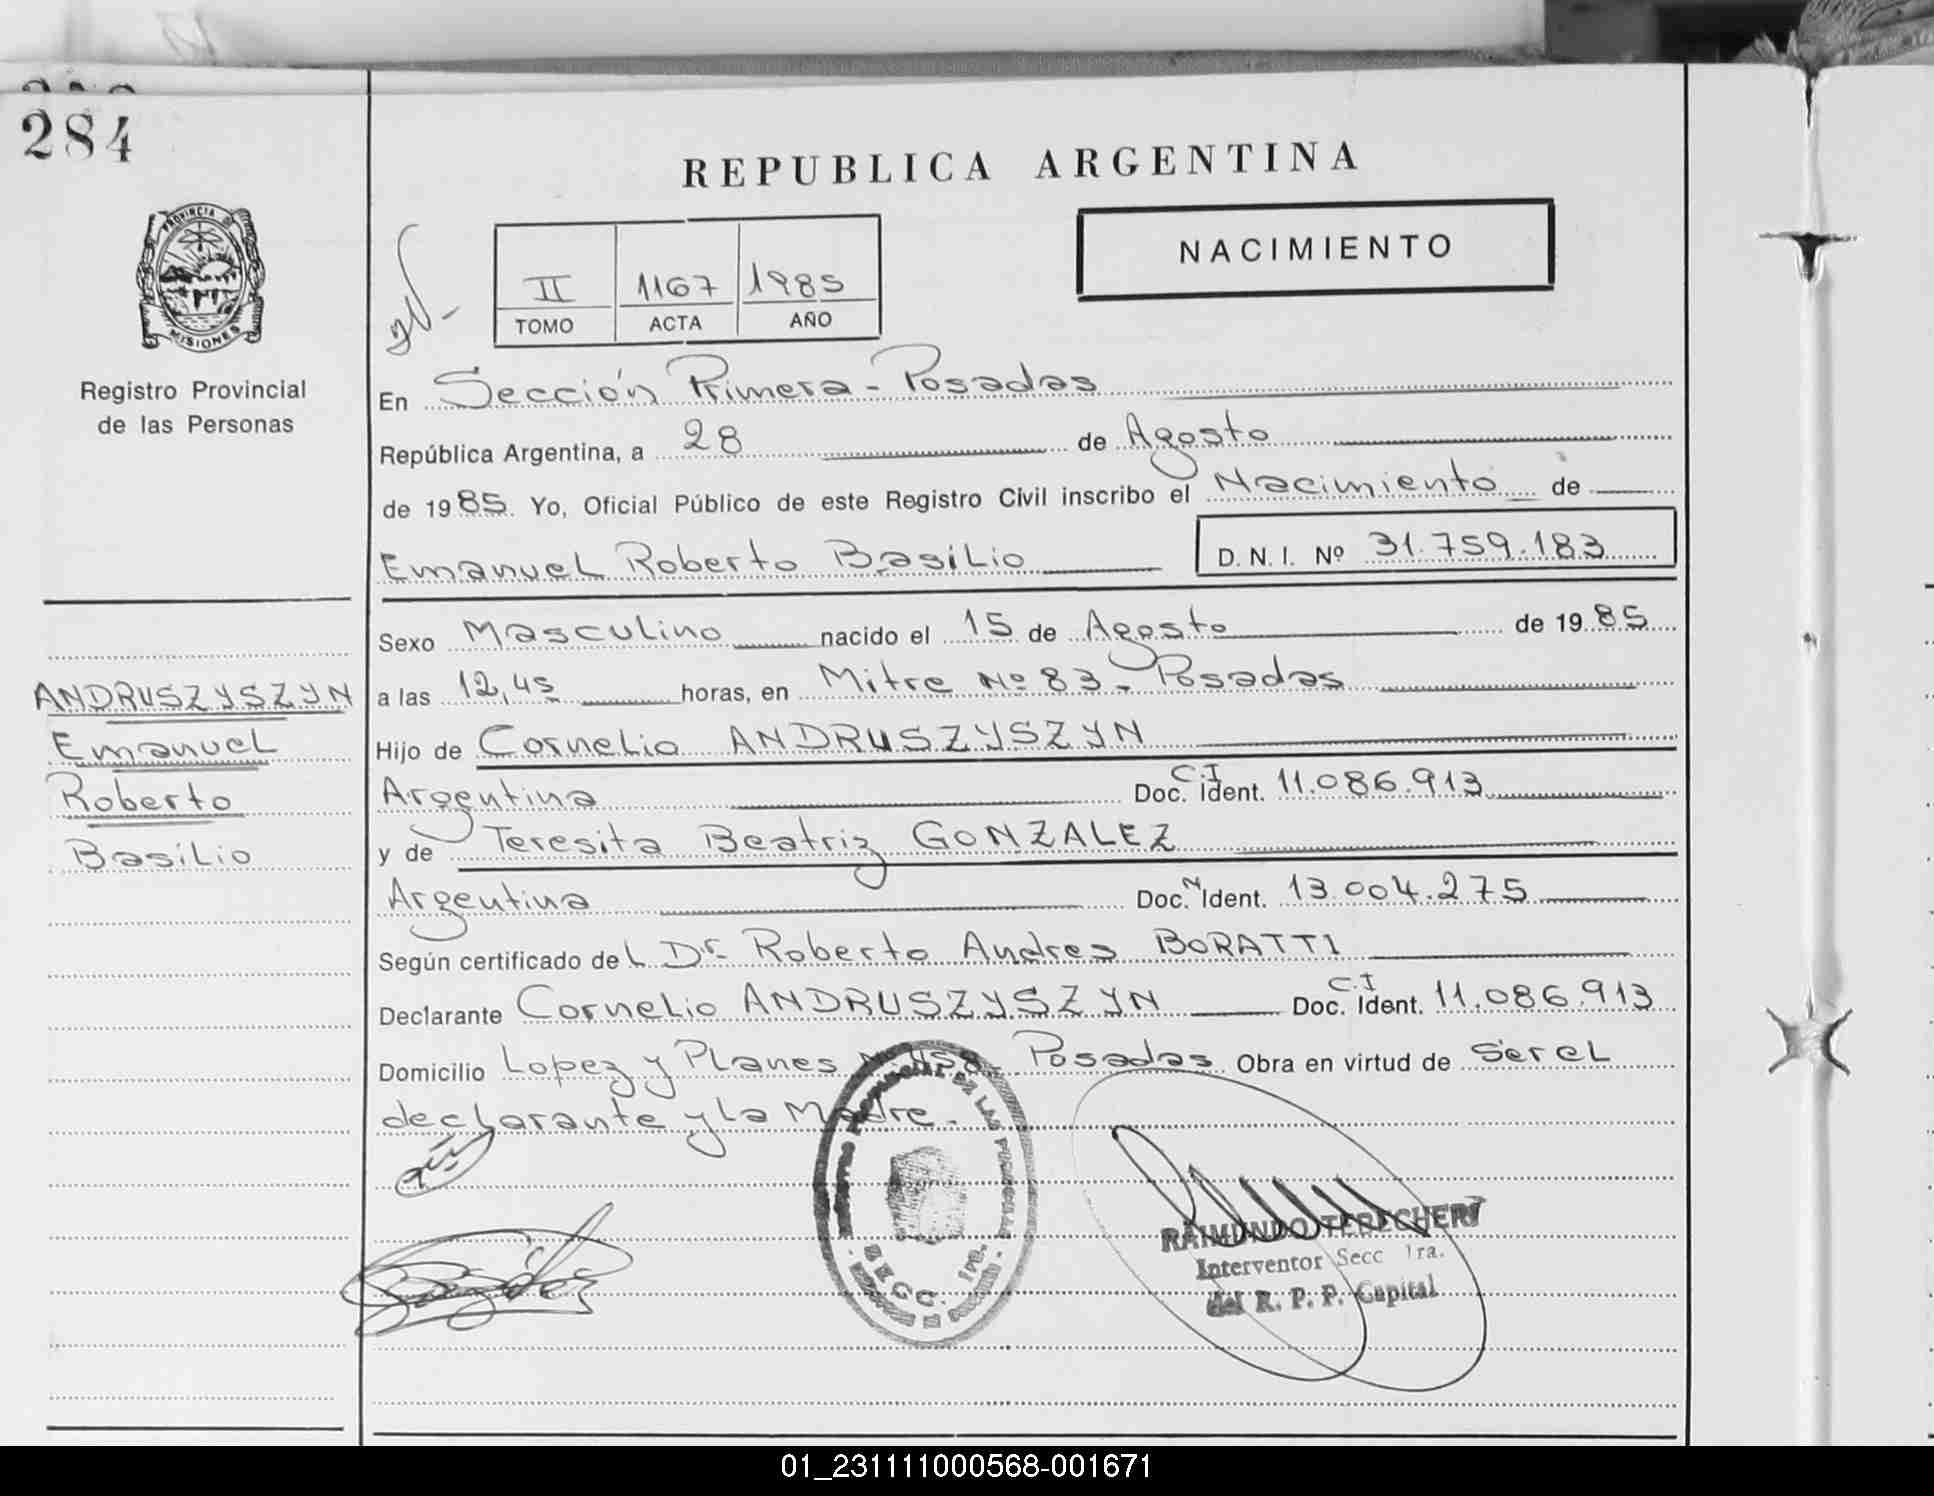 284
REPUBLICA ARGENTINA
PROVINCIA DE
MISIONES
Registro Provincial
de las Personas
II 1167 1985
TOMO ACTA AÑO
NACIMIENTO
En Sección Primera - Posadas
República Argentina, a 28 de Agosto
de 1985. Yo, Oficial Público de este Registro Civil inscribo el Nacimiento de
Emanuel Roberto Basilio D. N. I. Nº 31.759.183
Sexo Masculino nacido el 15 de Agosto de 1985
a las 12,45 horas, en Mitre Nº 83 - Posadas
Hijo de Cornelio ANDRUSZYSZYN
Argentina Doc. Ident. C.I 11.086.913
y de Teresita Beatriz GONZALEZ
Argentina Doc. N Ident. 13.004.275
Según certificado del Dr. Roberto Andres BORATTI
Declarante Cornelio ANDRUSZYSZYN Doc. Ident. C.I 11.086.913
Domicilio Lopez y Planes Posadas Obra en virtud de Ser el
declarante y la Madre.
ANDRUSZYSZYN
Emanuel
Roberto
Basilio
REGISTRO PROVINCIAL DE LAS PERSONAS
SECC. 1ra.
RAIMUNDO TERECHERI
Interventor Secc 1ra.
del R. P. P. Capital
01_231111000568-001671